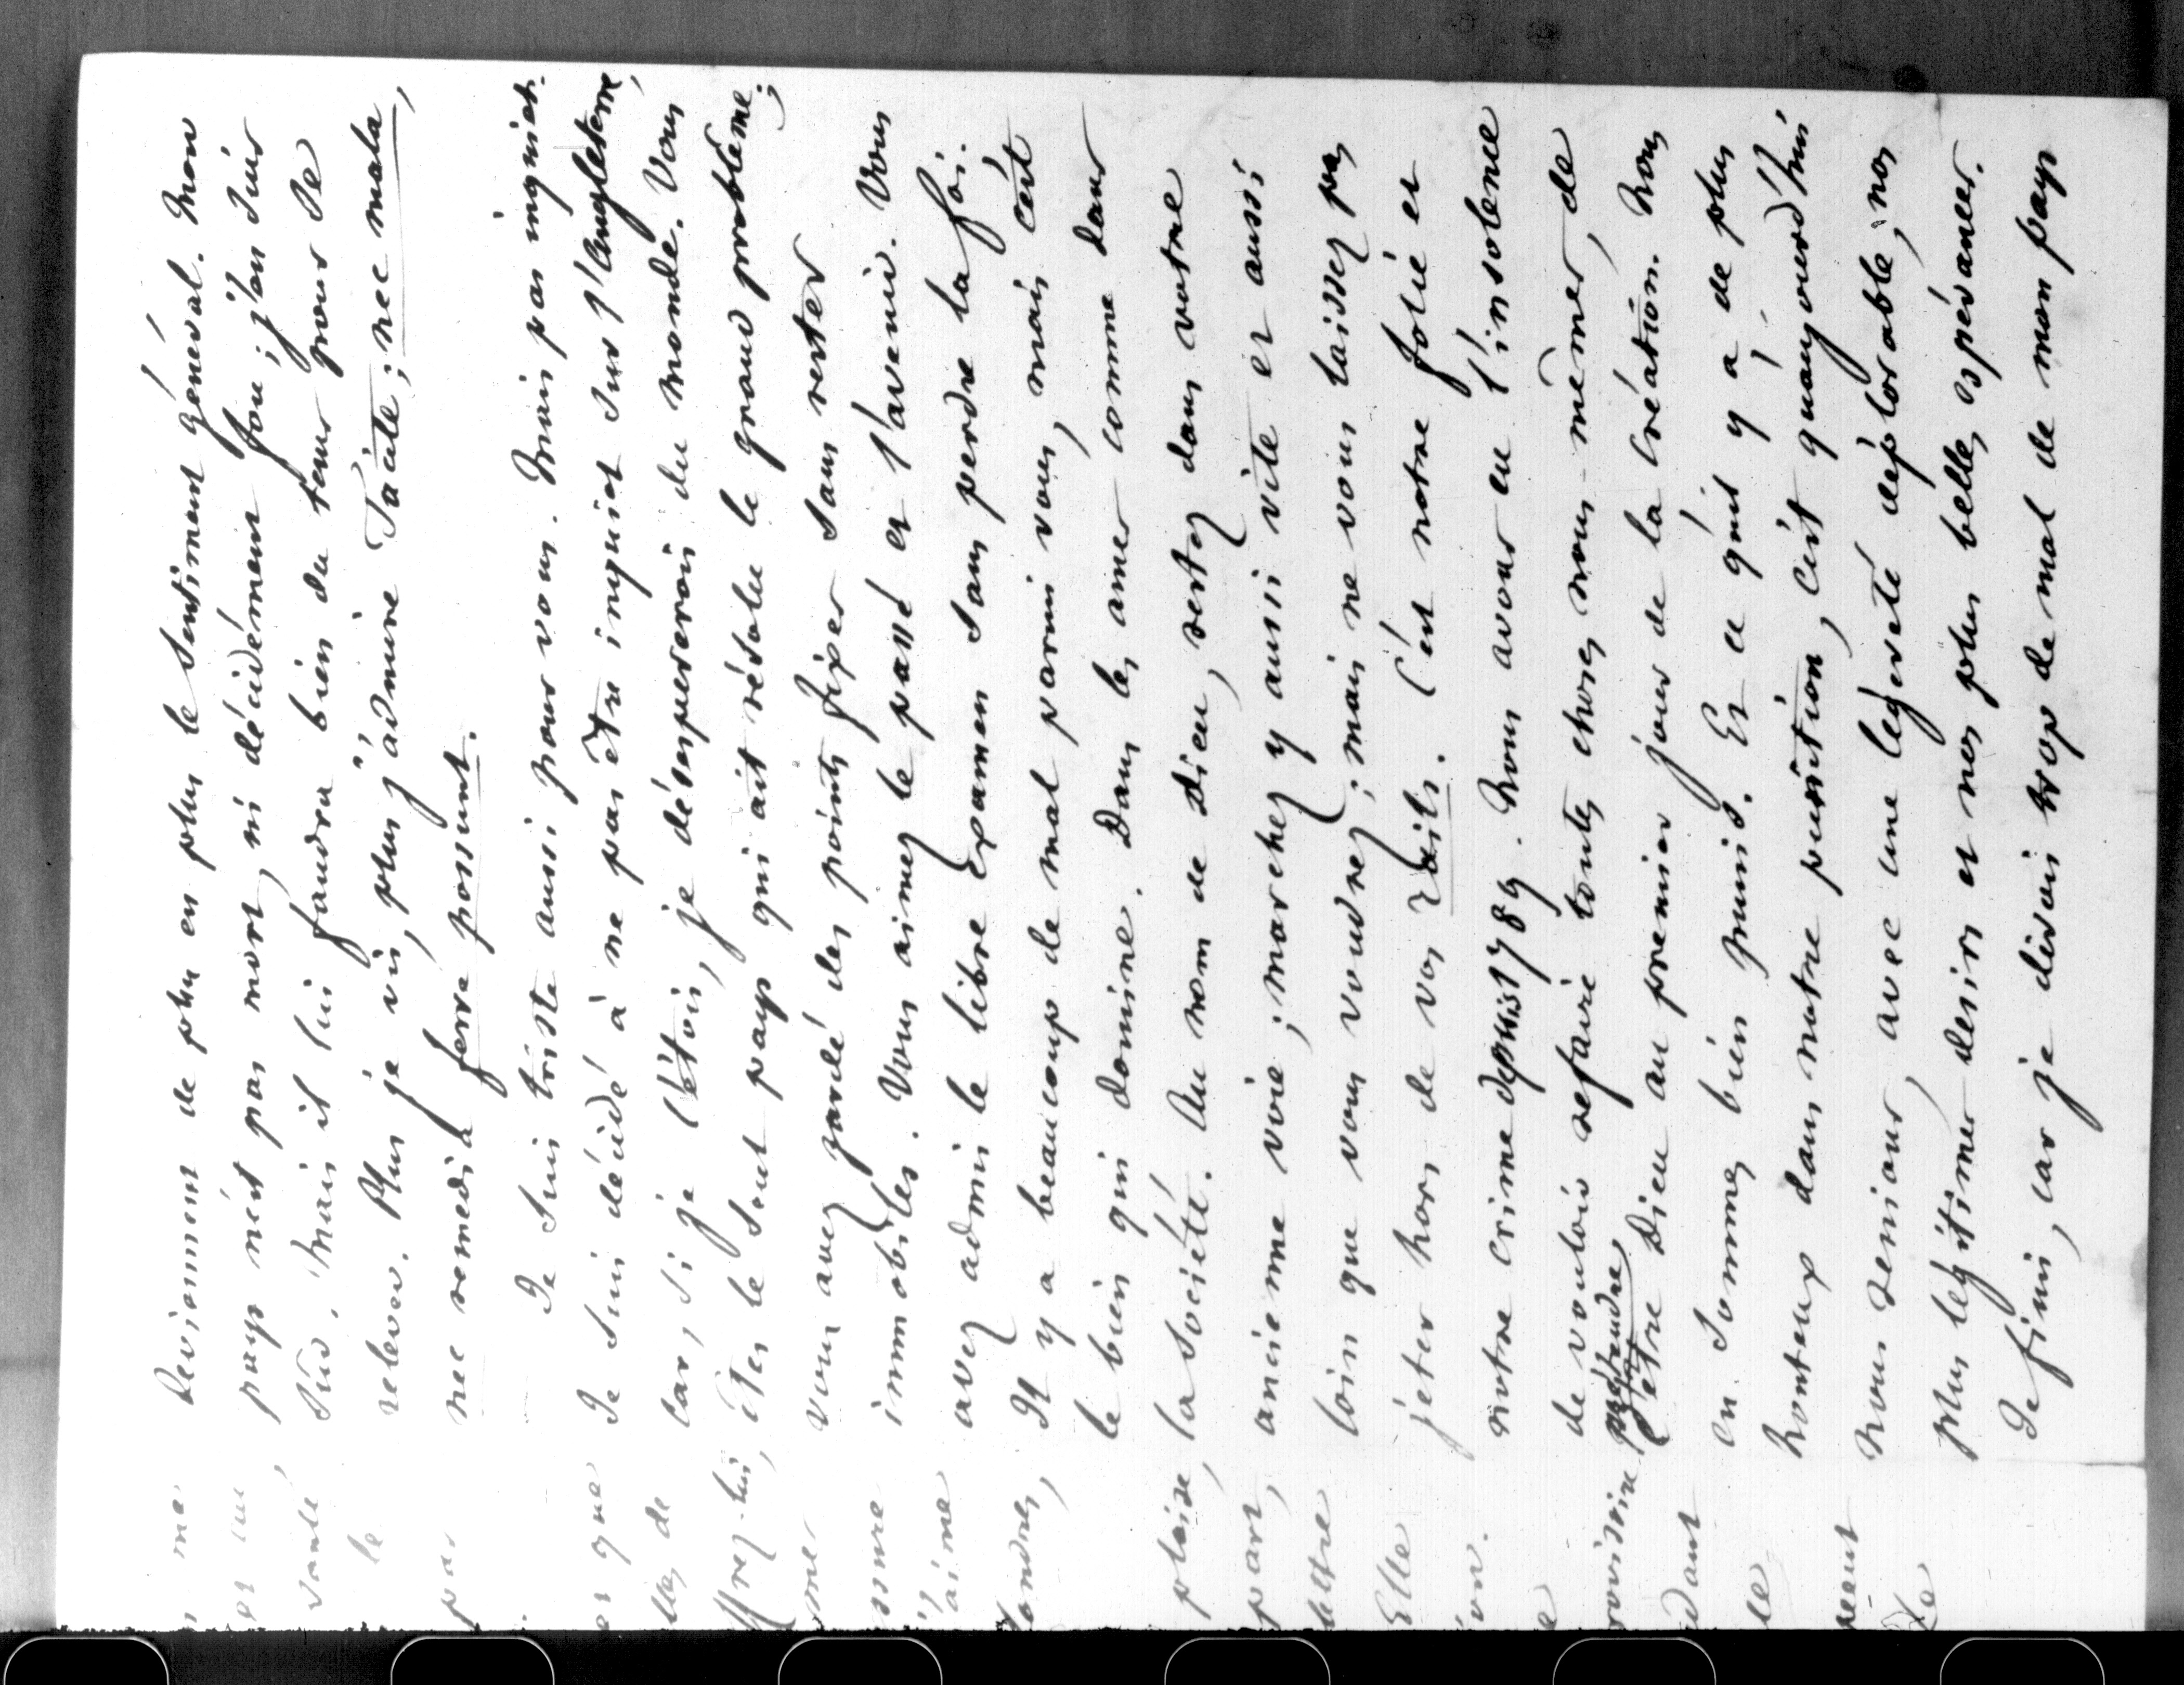 deviennent de plus en plus le sentiment général. Mon
pays n'est pas mort, ni décidément fou ; j'en suis
sûr. Mais il lui faudra bien du temps pour se
relever. Plus je vis, plus j'admire Tacite ; nec mala,
nec remedia ferre possunt.
Je suis triste aussi pour vous. Mais pas inquiet.
Je suis décidé à ne pas être inquiet sur l'Angleterre,
car, si je l'étois, je désespererois du monde. Vous
êtes le seul pays qui ait résolu le grand problème ;
vous avez gardé des points fixes sans rester
immobiles. Vous aimez le passé et l'avenir. Vous
avez admis le libre examen sans perdre la foi.
Il y a beaucoup de mal parmi vous, mais c'est
le bien qui domine. Dans les ames comme dans
la société. Au nom de Dieu, restez dans votre
ancienne voie ; marchez y aussi vite et aussi
loin que vous voudrez ; mais ne vous laissez pas
jeter hors de vos rails. C'est notre folie et
notre crime depuis 1789. Nous avons eu l'insolence
de vouloir refaire toutes choses nous-mêmes, de
prétendre
être Dieu au premier jour de la création. Nous
en sommes bien punis. Et ce qu'il y a de plus
honteux dans notre punition, c'est qu'aujourd'hui
nous renions, avec une légèreté déplorable, nos
plus légitimes desirs et nos plus belles espérances.
Je finis, car je dirois trop de mal de mon pays
me
et un
vante
le
par
es que
les de
ffrez-lui,
mer
j'aime
Londres,
plaise,
part,
Elle
ion.
e
rovisoire
dant
le
de